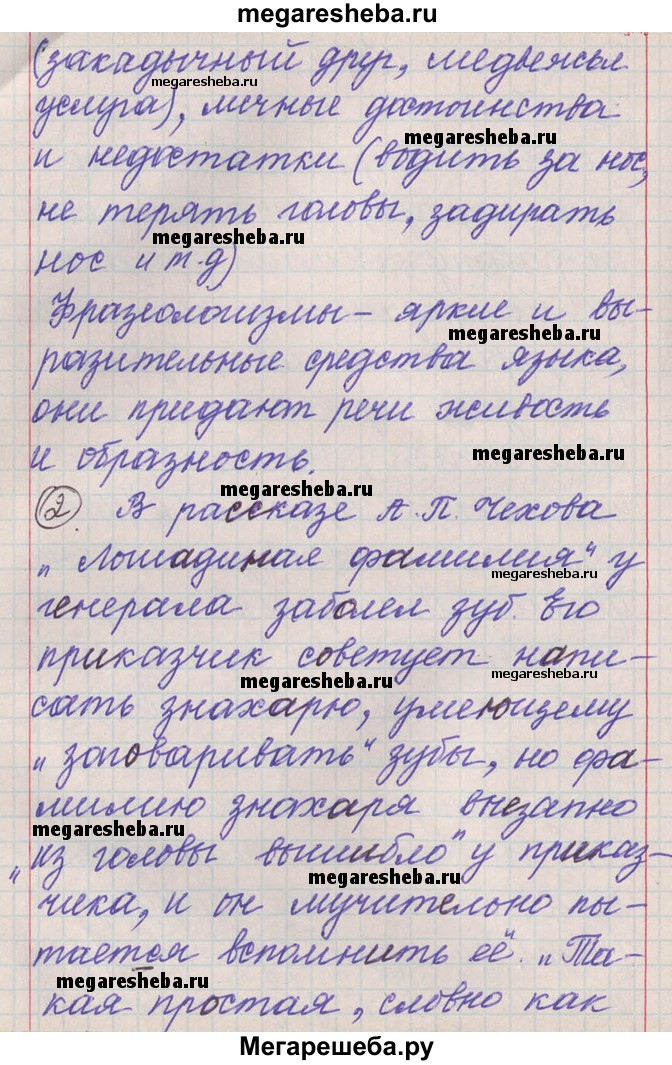 megaresheba.ru
(закадычный друг, медвежья
megaresheba.ru
услуга), личные достоинства
megaresheba.ru
и недостатки (водить за нос,
не терять головы, задирать
megaresheba.ru
нос и т.д)
Фразеологизмы – яркие и вы-
megaresheba.ru
разительные средства языка,
они придают речи живость
megaresheba.ru
и образность.
megaresheba.ru
2 В рассказе А.П. Чехова
„Лошадиная фамилия“ у
megaresheba.ru
генерала заболел зуб. Его
приказчик советует напи-
megaresheba.ru
сать знахарю, умеющему
„заговаривать“ зубы, но фа-
милию знахаря внезапно
megaresheba.ru
„из головы вышибло“ у приказ-
megaresheba.ru
чика, и он мучительно пы-
тается вспомнить её. „Та-
megaresheba.ru
кая простая, словно как
Мегарешеба.ру